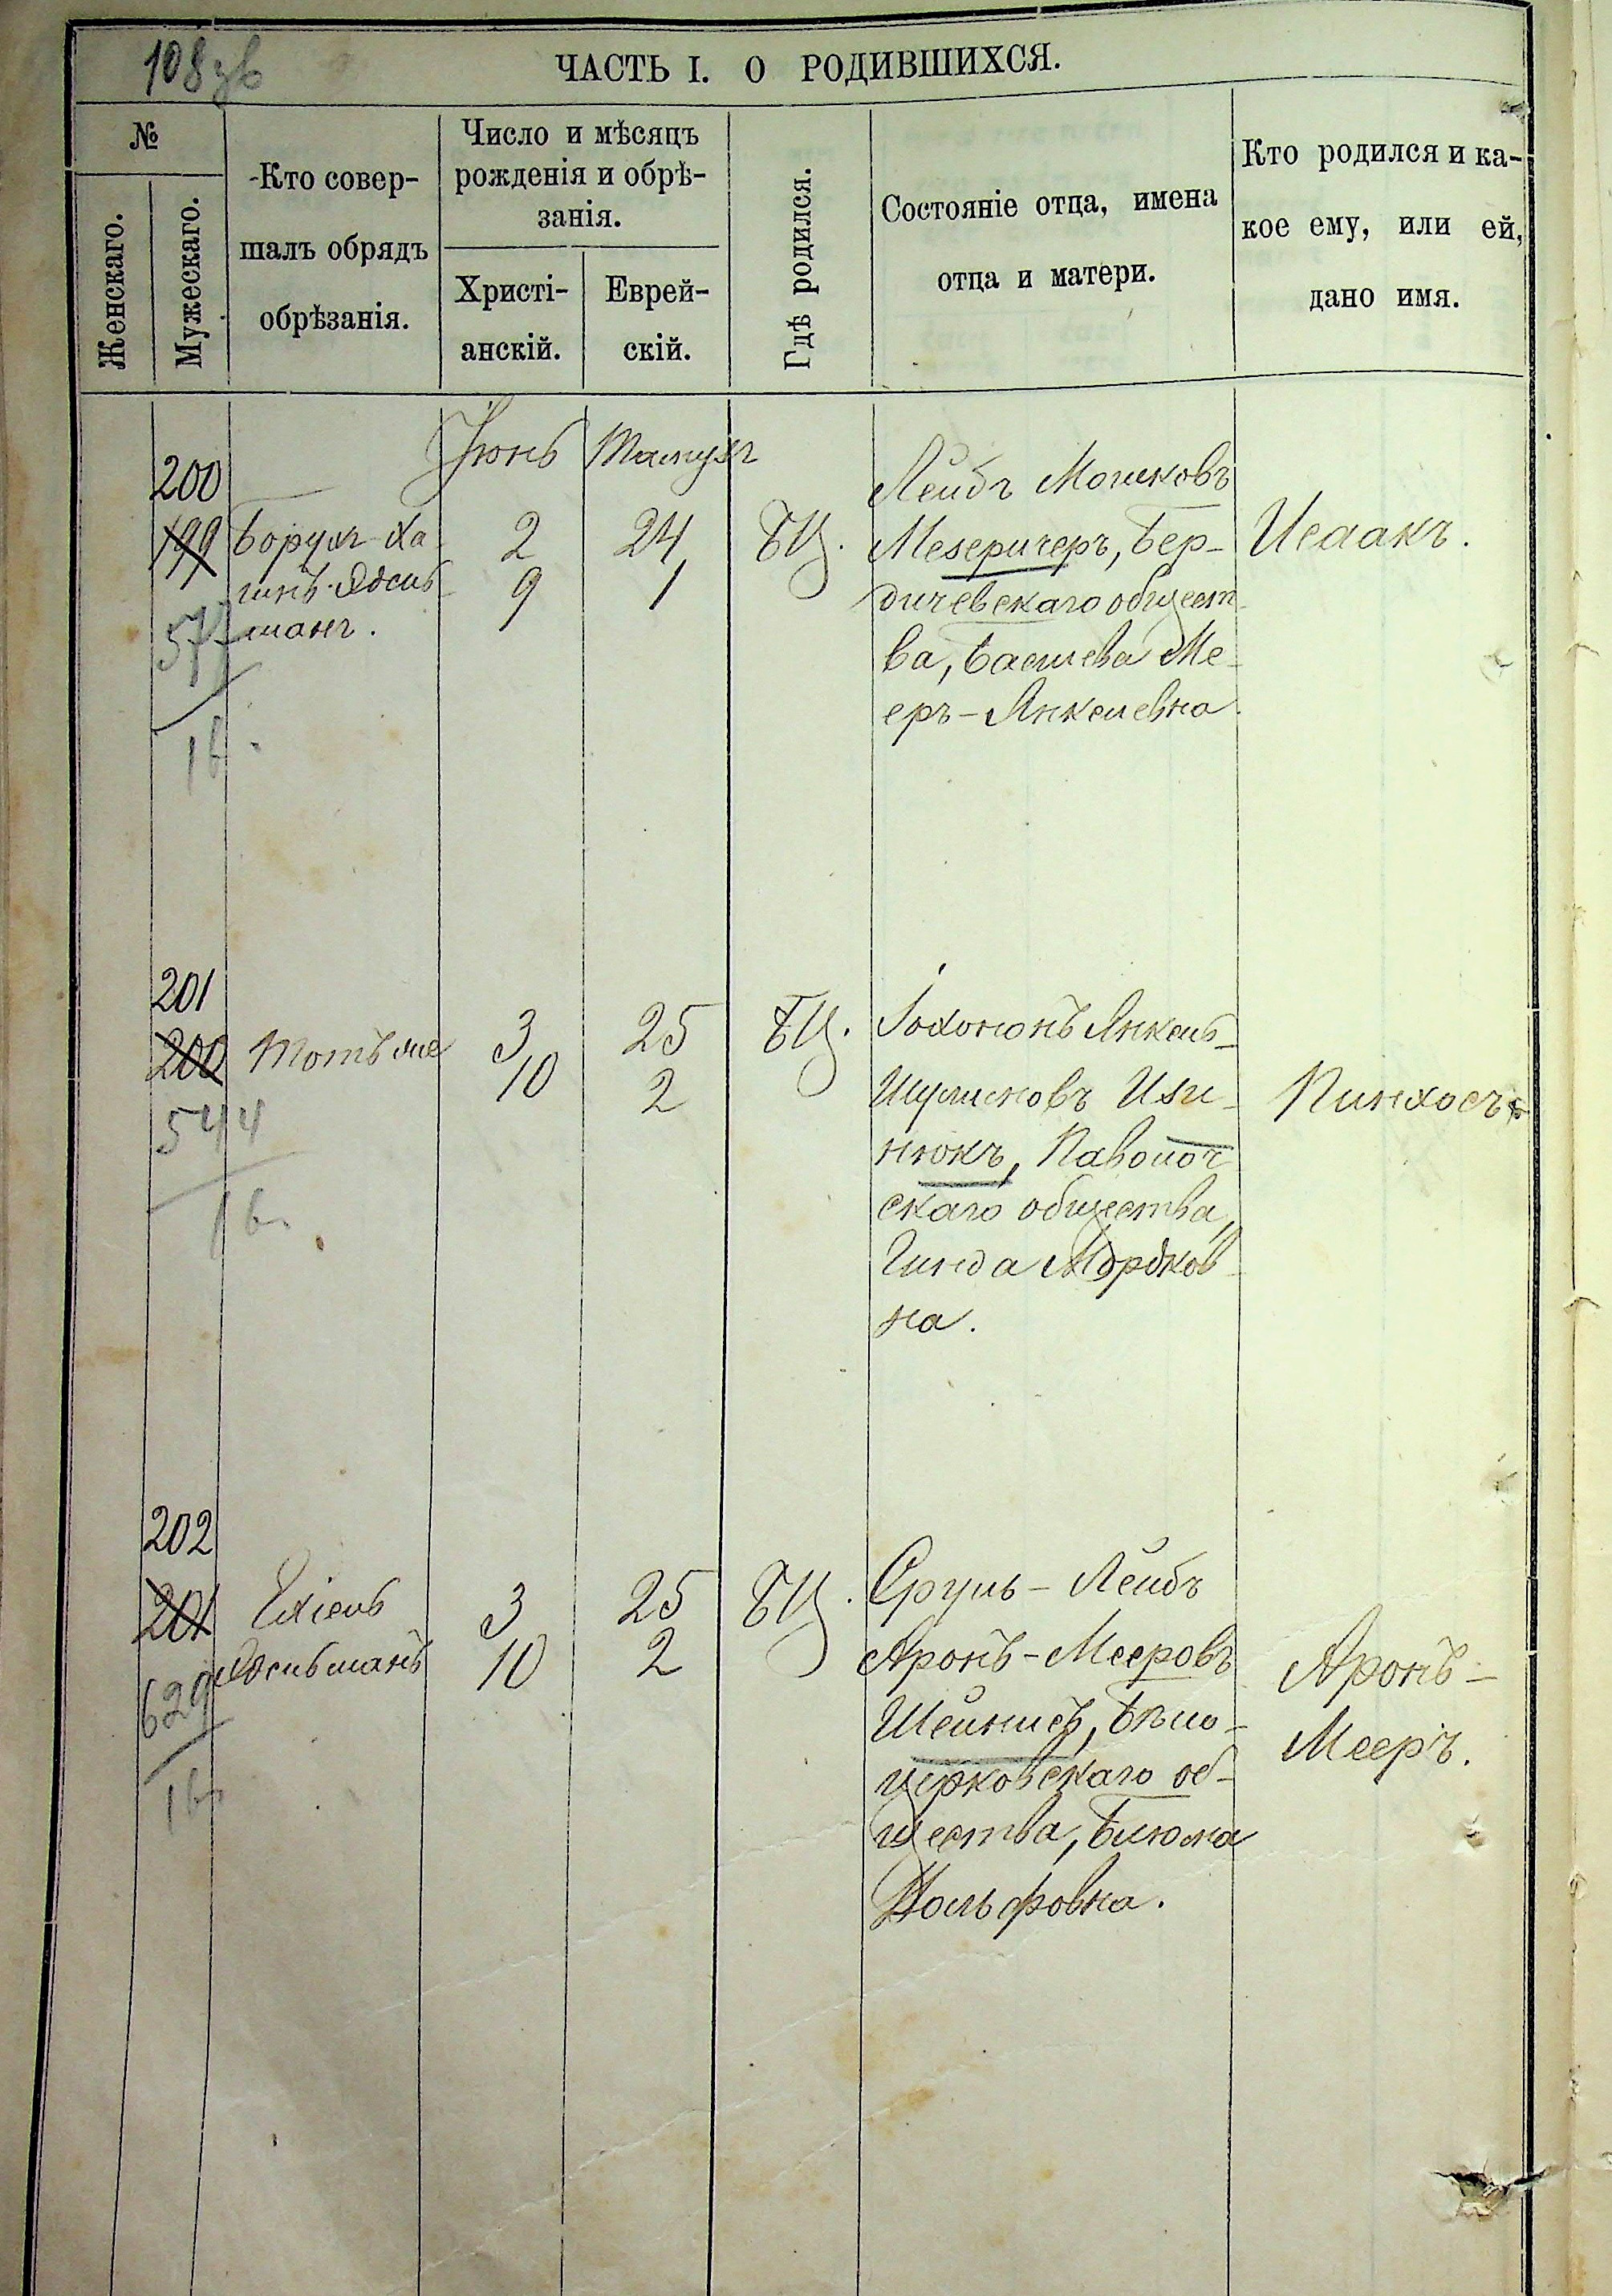 108 зв
ЧАСТЬ I. О РОДИВШИХСЯ.
№
Женскаго.
Мужескаго.
Кто совер-
шалъ обрядъ
обрѣзанія.
Число и мѣсяцъ
рожденія и обрѣ-
занія.
Христі-
анскій.
Еврей-
скій.
Гдѣ родился.
Состояніе отца, имена
отца и матери.
Кто родился и ка-
кое ему, или ей,
дано имя.
Іюнь Тамузъ
200
199
577
Борухъ-Ха-
имъ
манъ.
2 24
9 1
БЦ.
Лейбъ Мошковъ
Мезеричеръ, Бер-
дичевскаго общест-
ва, Басшева Ме-
еръ-Янкелевна.
Исаакъ.
201
200
544
Тотъ же
3 25
10 2
БЦ.
Іохононъ Янкель-
Шулимовъ Изи-
нюкъ, Паволоч
скаго общества,
Гинда Мордков-
на.
Пинхосъ
202
201
629
Ехіель
3 25
10 2
БЦ.
Сруль-Лейбъ
Аронъ-Мееровъ
Бѣло-
церковскаго об-
щества, Блюма
Вольфовна.
Аронъ-
Мееръ.